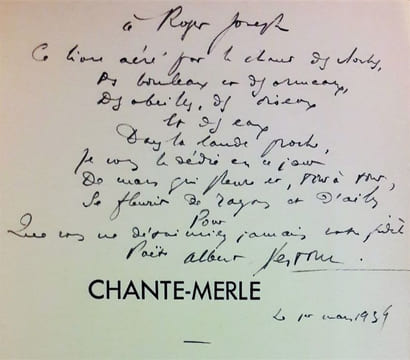 à Roger Joseph
Ce livre aéré par le chant des cloches,
Des bouleaux et des ormeaux,
Des abeilles, des oiseaux
Et des eaux
Dans la lande proche,
Je vous le dédie en ce jour
De mars qui pleure et, tour à tour,
Se fleurit de rayons et d'ailes
Pour
Que vos ne jamais votre fidèle
Poète Albert
CHANTE-MERLE
Le 1er mars 1934